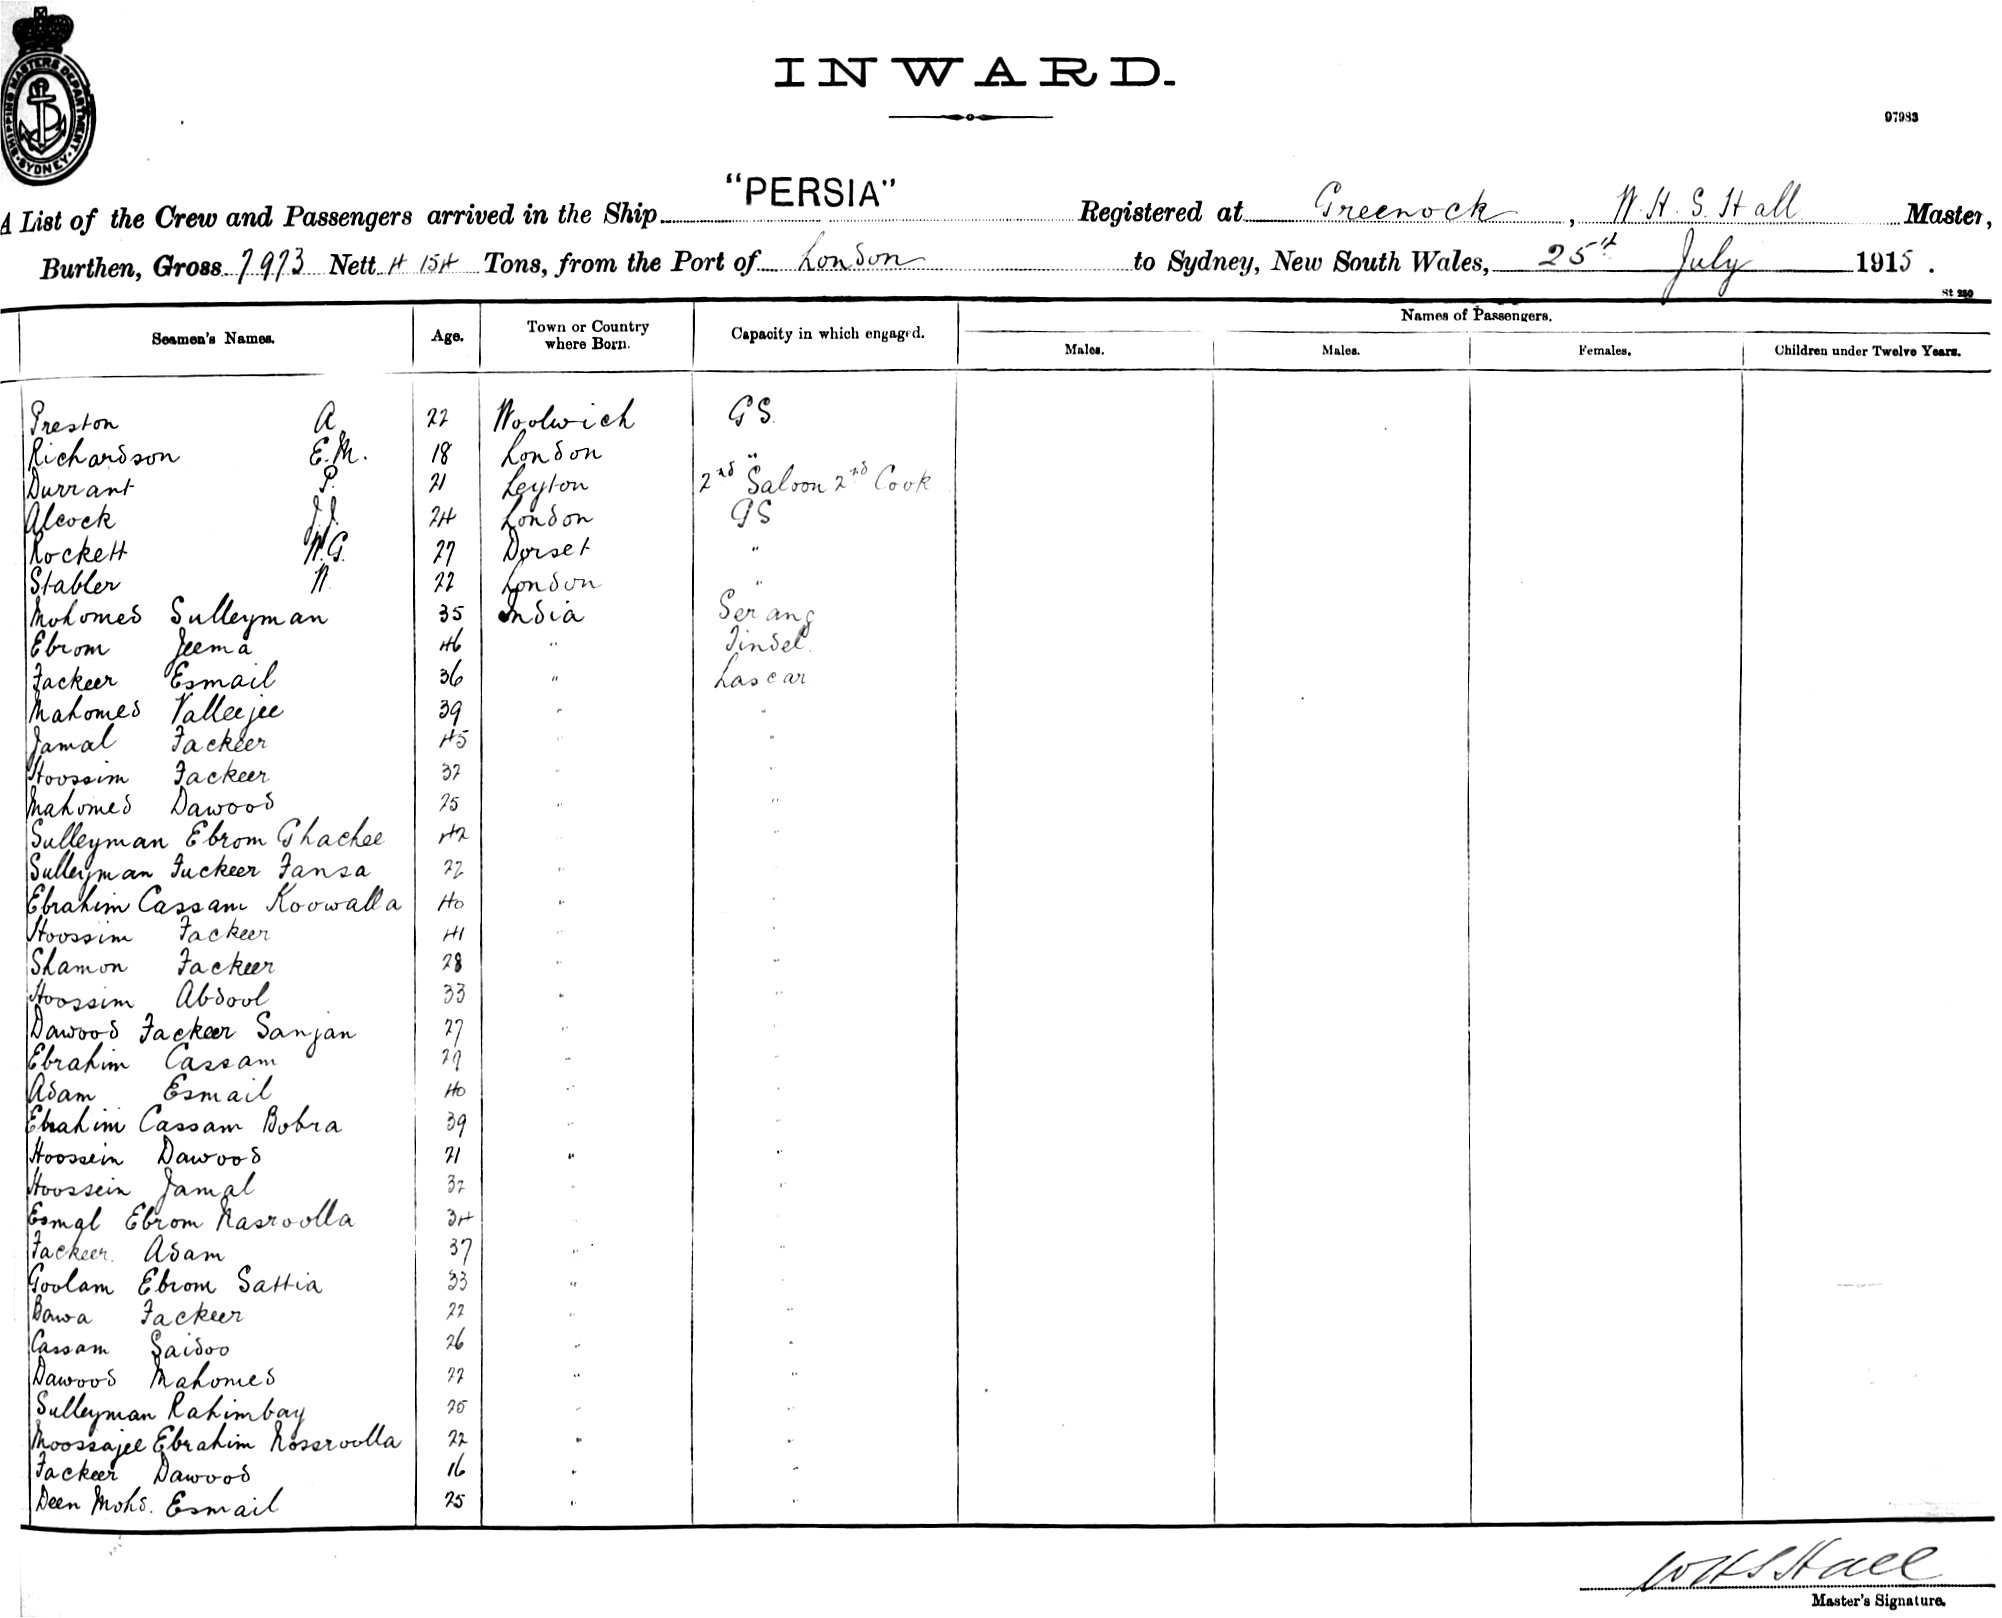 SHIPPING MASTERS DEPARTMENT SYDNEY
INWARD.
97983
A List of the Crew and Passengers arrived in the Ship "PERSIA" Registered at Greenock, W. H. S. Hall Master,
Burthen, Gross 7973 Nett 4154 Tons, from the Port of London to Sydney, New South Wales, 25th July 1915.
St 250
Seamen's Names. Age. Town or Country where Born. Capacity in which engaged. Names of Passengers.
Males. Males. Females. Children under Twelve Years.
Preston A 22 Woolwich GS
Richardson E.M. 18 London "
Durrant P. 21 Leyton 2nd Saloon 2nd Cook
Alcock J.J. 24 London GS
Rockett W.G. 27 Dorset "
Stabler N 22 London "
Mohomed Sulleyman 35 India Serang
Ebrom Jeema 46 " Tindel
Fackeer Esmail 36 " Lascar
Mahomed Valleejee 39 " "
Jamal Fackeer 45 " "
Hoossim Fackeer 32 " "
Mahomed Dawood 25 " "
Sulleyman Ebrom Ghachee 42 " "
Sulleyman Fuckeer Fansa 22 " "
Ebrahim Cassam Koowalla 40 " "
Hoossim Fackeer 41 " "
Shamon Fackeer 28 " "
Hoossim Abdool 33 " "
Dawood Fackeer Sanjan 27 " "
Ebrahim Cassam 29 " "
Adam Esmail 40 " "
Ebrahim Cassam Bobra 39 " "
Hoossein Dawood 21 " "
Hoossein Jamal 32 " "
Esmal Ebrom Nasroolla 34 " "
Fackeer. Adam 37 " "
Goolam Ebrom Sattia 33 " "
Bawa Fackeer 22 " "
Cassam Saidoo 26 " "
Dawood Mahomed 22 " "
Sulleyman Rahimbay 25 " "
Moossajee Ebrahim Nossroolla 22 " "
Fackeer Dawood 16 " "
Deen Mohd. Esmail 25 " "
W H S Hall
Master's Signature.